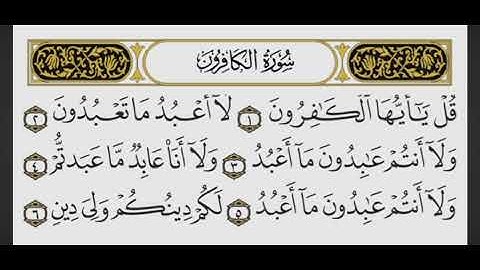 سُورَةُ الكَافِرُونَ
قُلْ يَٰٓأَيُّهَا ٱلْكَٰفِرُونَ ١ لَآ أَعْبُدُ مَا تَعْبُدُونَ ٢
وَلَآ أَنتُمْ عَٰبِدُونَ مَآ أَعْبُدُ ٣ وَلَآ أَنَا۠ عَابِدٌ مَّا عَبَدتُّمْ ٤
وَلَآ أَنتُمْ عَٰبِدُونَ مَآ أَعْبُدُ ٥ لَكُمْ دِينُكُمْ وَلِىَ دِينِ ٦